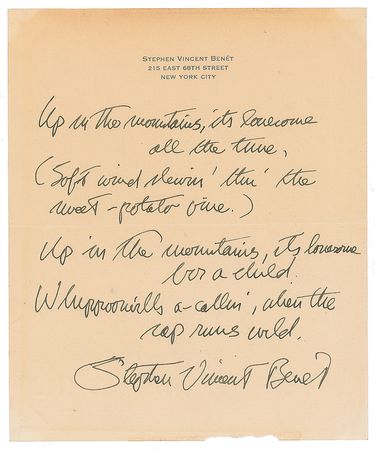 STEPHEN VINCENT BENÉT
215 EAST 68TH STREET
NEW YORK CITY
Up in the mountains, it's lonesome
all the time,
(Soft wind slewin' thu' the
sweet-potato vine.)
Up in the mountains, it's lonesome
for a child.
Whippoorwills a-callin', when the
sap runs wild.
Stephen Vincent Benét